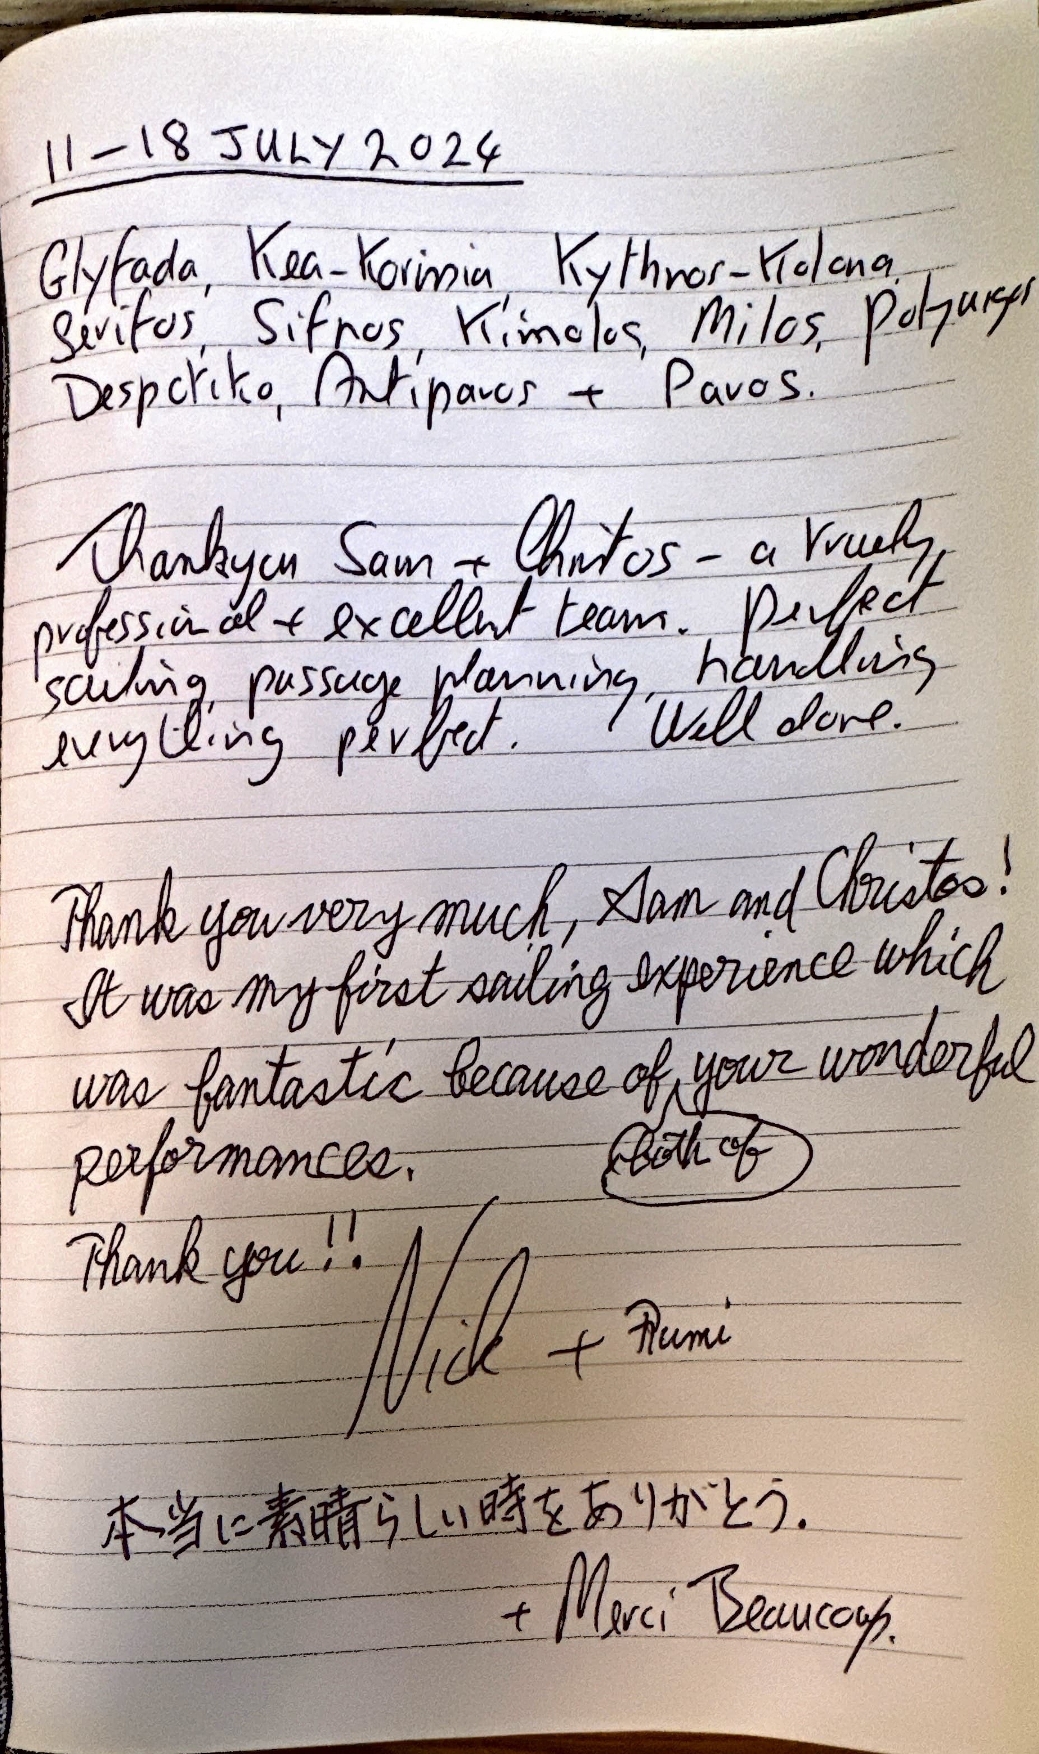 11-18 JULY 2024
Glyfada, Kea-Korissia, Kythnos-Kolona,
Serifos, Sifnos, Kimolos, Milos, Polyaigos
Despotiko, Antiparos + Paros.
Thankyou Sam + Christos - a truely,
professional + excellent team. Perfect
sailing, passage planning, handling
everything perfect. Well done.
Thank you very much, Sam and Christos!
It was my first sailing experience which
was fantastic because of your wonderful
both of
performances.
Thank you!!
Nick + Rumi
本当に素晴らしい時をありがとう.
+ Merci Beaucoup.